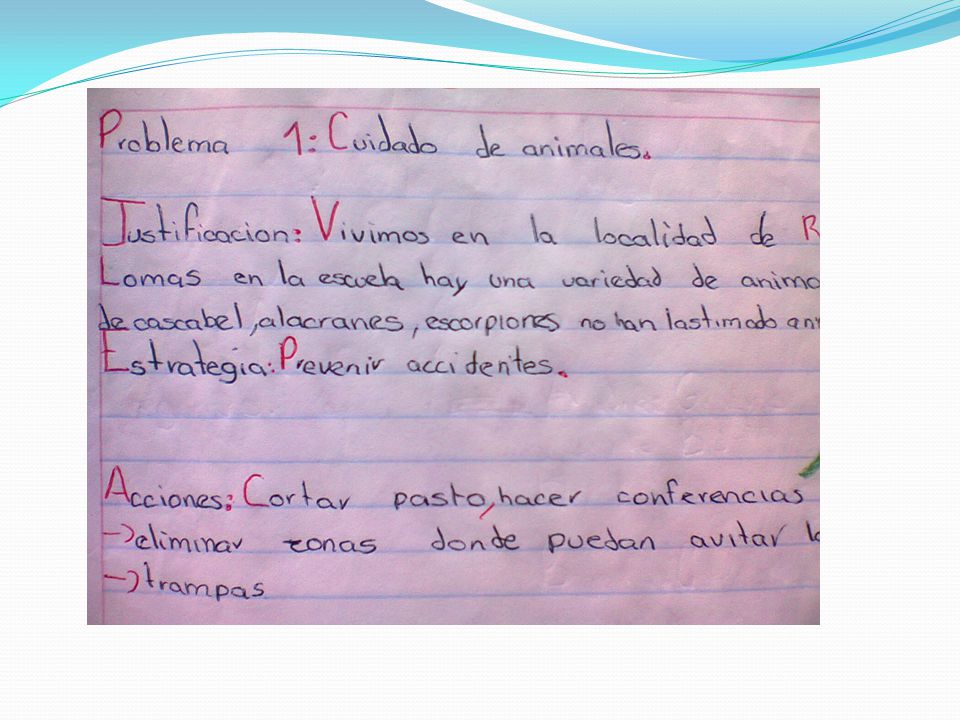 Problema 1: Cuidado de animales.
Justificacion: Vivimos en la localidad de R
Lomas en la escuela hay una variedad de anima
de cascabel, alacranes, escorpiones no han lastimado
Estrategia: Prevenir accidentes.
Acciones: Cortar pasto, hacer conferencias
→ eliminar zonas donde puedan avitar
→ trampas